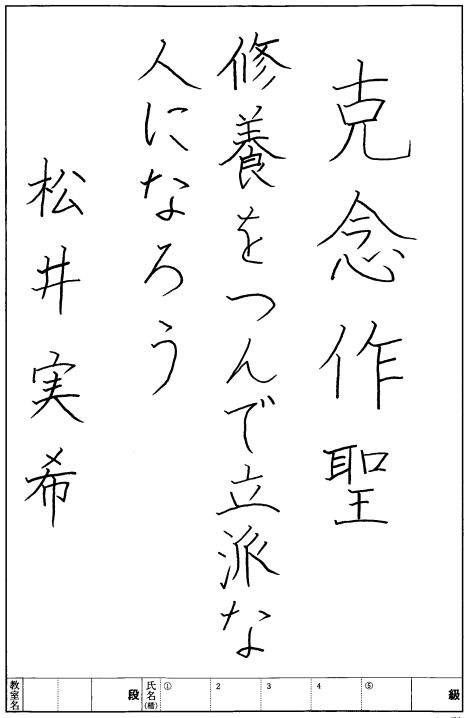 克念作聖
修養をつんで立派な
人になろう
松井実希
教室名 段 氏名(楷) ① 2 3 4 ⑤ 級